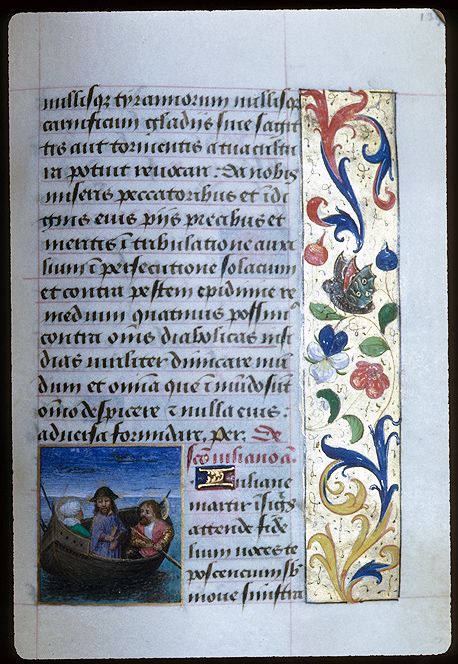 nullisqz tyrannorum nullisqz
carnificum gladijs siue sagit
tis aut tormentis a tua cultu
ra potuit reuocari: Da nobis
miseris peccatoribus et īdi
gnis eius pijs precibus et
meritis ī tribulatione auxi
lium ī persecutione solacium
et contra pestem epidimie re
medium quatinus possim9
contra om̄s diabolicas insi
dias uiriliter dimicare mū
dum et omīa que ī mūdo sūt
om̄o despicere τ nulla eius
aduersa formidare. per. De
scō iuliano a.
Iuliane
martir īsiḡs
attende fide
lium uoces te
poscencium sb
moue sinistra